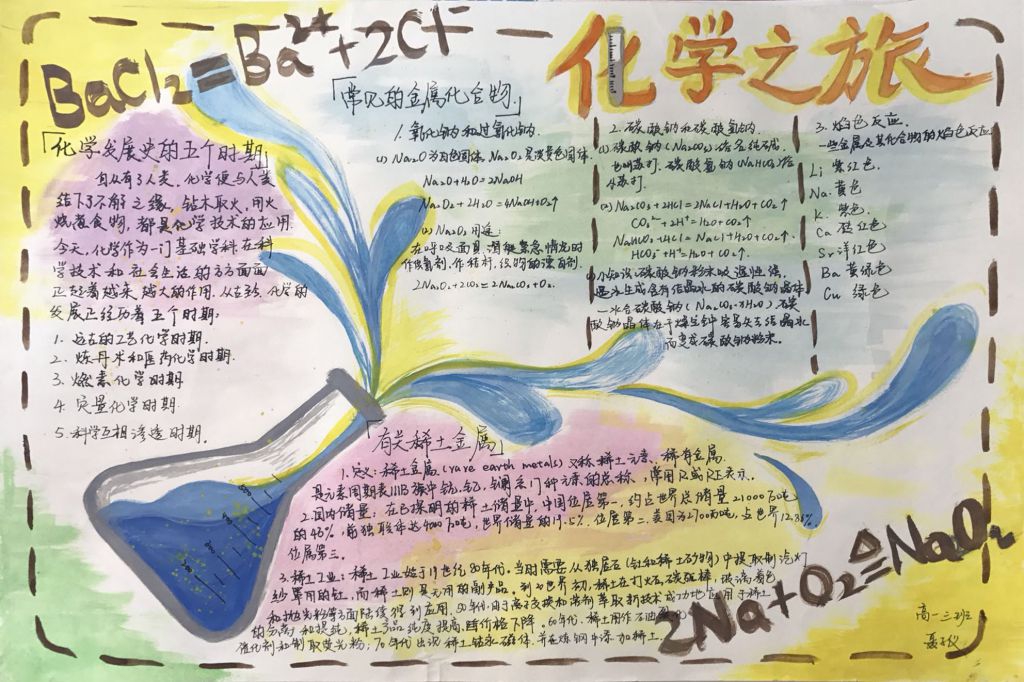 BaCl₂=Ba²⁺+2Cl⁻
化学之旅
「化学发展史的五个时期」
自从有了人类，化学便与人类
结下了不解之缘。钻木取火，用火
烧煮食物，都是化学技术的应用.
今天，化学作为一门基础学科在科
学技术和社会生活的方方面面
正起着越来越大的作用.从古至今,化学的
发展正经历着五个时期:
1. 远古的工艺化学时期.
2. 炼丹术和医药化学时期.
3. 燃素化学时期
4. 定量化学时期.
5. 科学互相渗透时期.
「常见的金属化合物」
1. 氧化钠和过氧化钠.
(1) Na₂O为白色固体, Na₂O₂是淡黄色固体.
Na₂O+H₂O=2NaOH
Na₂O₂+2H₂O=4NaOH+O₂↑
(2) Na₂O₂用途:
在呼吸面具,潜艇紧急情况时
作供氧剂.作秸秆、织物的漂白剂.
2Na₂O₂+2CO₂=2Na₂CO₃+O₂.
2. 碳酸钠和碳酸氢钠.
(1)碳酸钠(Na₂CO₃)俗名纯碱,
也叫苏打.碳酸氢钠(NaHCO₃)俗
名小苏打.
(2) Na₂CO₃+2HCl=2NaCl+H₂O+CO₂↑
CO₃²⁻+2H⁺=H₂O+CO₂↑
NaHCO₃+HCl=NaCl+H₂O+CO₂↑.
HCO₃⁻+H⁺=H₂O+CO₂↑.
小知识:碳酸钠粉末吸遇性结,
遇水生成含有结晶水的碳酸钠晶体
一水合碳酸钠(Na₂CO₃·H₂O).碳
酸钠晶体在干燥空气中容易失去结晶水
而变成碳酸钠粉末.
3. 焰色反应.
一些金属及其化合物的焰色反应
Li 紫红色.
Na. 黄色
K. 紫色.
Ca 砖红色
Sr 洋红色
Ba 黄绿色
Cu 绿色
「有关稀土金属」
1. 定义:稀土金属(rare earth metals)又称稀土元素、稀有金属.
是元素周期表IIIB族中钪、钇、镧系17种元素的总称,常用R或RE表示.
2.国内储量:在已探明的稀土储量中,中国位居第一,约占世界总储量21000万吨
的43%,前独联体达4000万吨,世界储量的19.5%,位居第二,美国为2700万吨,占世界12.38%
位居第三.
3.稀土工业:稀土工业始于19世纪80年代,当时需要从独居石(钍和稀土矿物)中提取制汽灯
纱罩用的钍,而稀土则是无用的副产品.到20世纪初,稀土在打火石,碳弧棒,玻璃着色
和抛光粉等方面陆续得到应用.50年代,由于离子交换和溶剂萃取新技术成功地应用于稀土
的分离和提纯,稀土产品纯度提高,降价格下降.60年代,稀土用作石油裂化
催化剂和制取荧光粉;70年代出现稀土钴永磁体.并在炼钢中添加稀土.
2Na+O₂≜NaO₂
高一三班